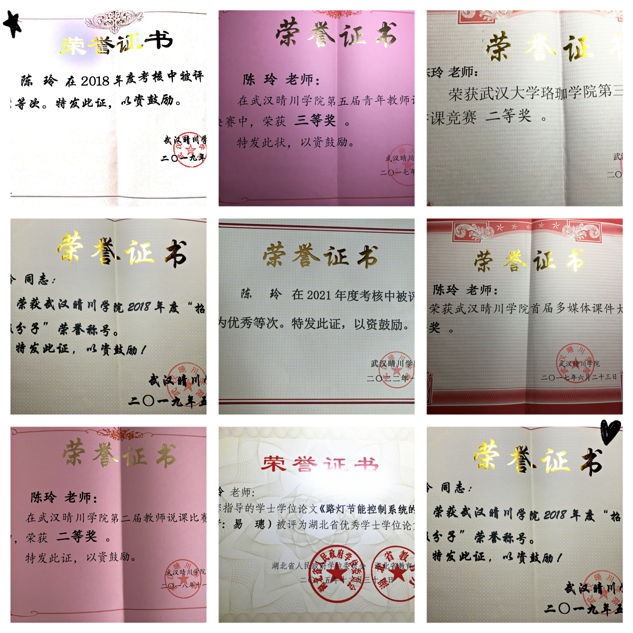 荣誉证书
陈 玲 在2018年度考核中被评
等次。特发此证，以资鼓励。
武汉晴川学
二〇一九年
荣誉证书
陈 玲 老师：
在武汉晴川学院第五届青年教师讲
决赛中，荣获 三等奖 。
特发此状，以资鼓励。
武汉晴川
二〇一七年
荣誉证书
陈玲 老师：
荣获武汉大学珞珈学院第三
课竞赛 二等奖 。
武
二〇
荣誉证书
同志：
荣获武汉晴川学院2018年度“招
分子”荣誉称号。
特发此证，以资鼓励！
武汉晴川
二〇一九年五
荣誉证书
陈 玲 在2021年度考核中被评
为优秀等次。特发此证，以资鼓励。
武汉晴川学
二〇二二年一
荣誉证书
陈玲 老师：
荣获武汉晴川学院首届多媒体课件大
奖 。
武汉晴川学院
二〇一七年六月二十三日
荣誉证书
陈玲 老师：
在武汉晴川学院第二届教师说课比赛
，荣获 二等奖 。
特发此证，以资鼓励。
武汉晴川学
二〇一八年十一
荣誉证书
老师：
指导的学士学位论文《路灯节能控制系统的
：易 璁）被评为湖北省优秀学士学位论文
湖北省人民政府学位委员会 湖北省教育
荣誉证书
同志：
荣获武汉晴川学院2018年度“招
分子”荣誉称号。
特发此证，以资鼓励！
武汉晴川
二〇一九年五